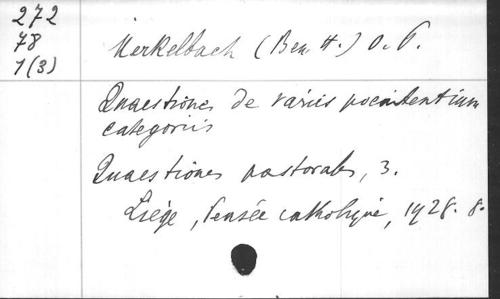 272
78
1(3)
Merkelbach (Ben. H.) O. P.
Quaestiones de variis poenitentium
categoriis
Quaestiones pastorales, 3.
Liège, Pensée catholique, 1928. 8.